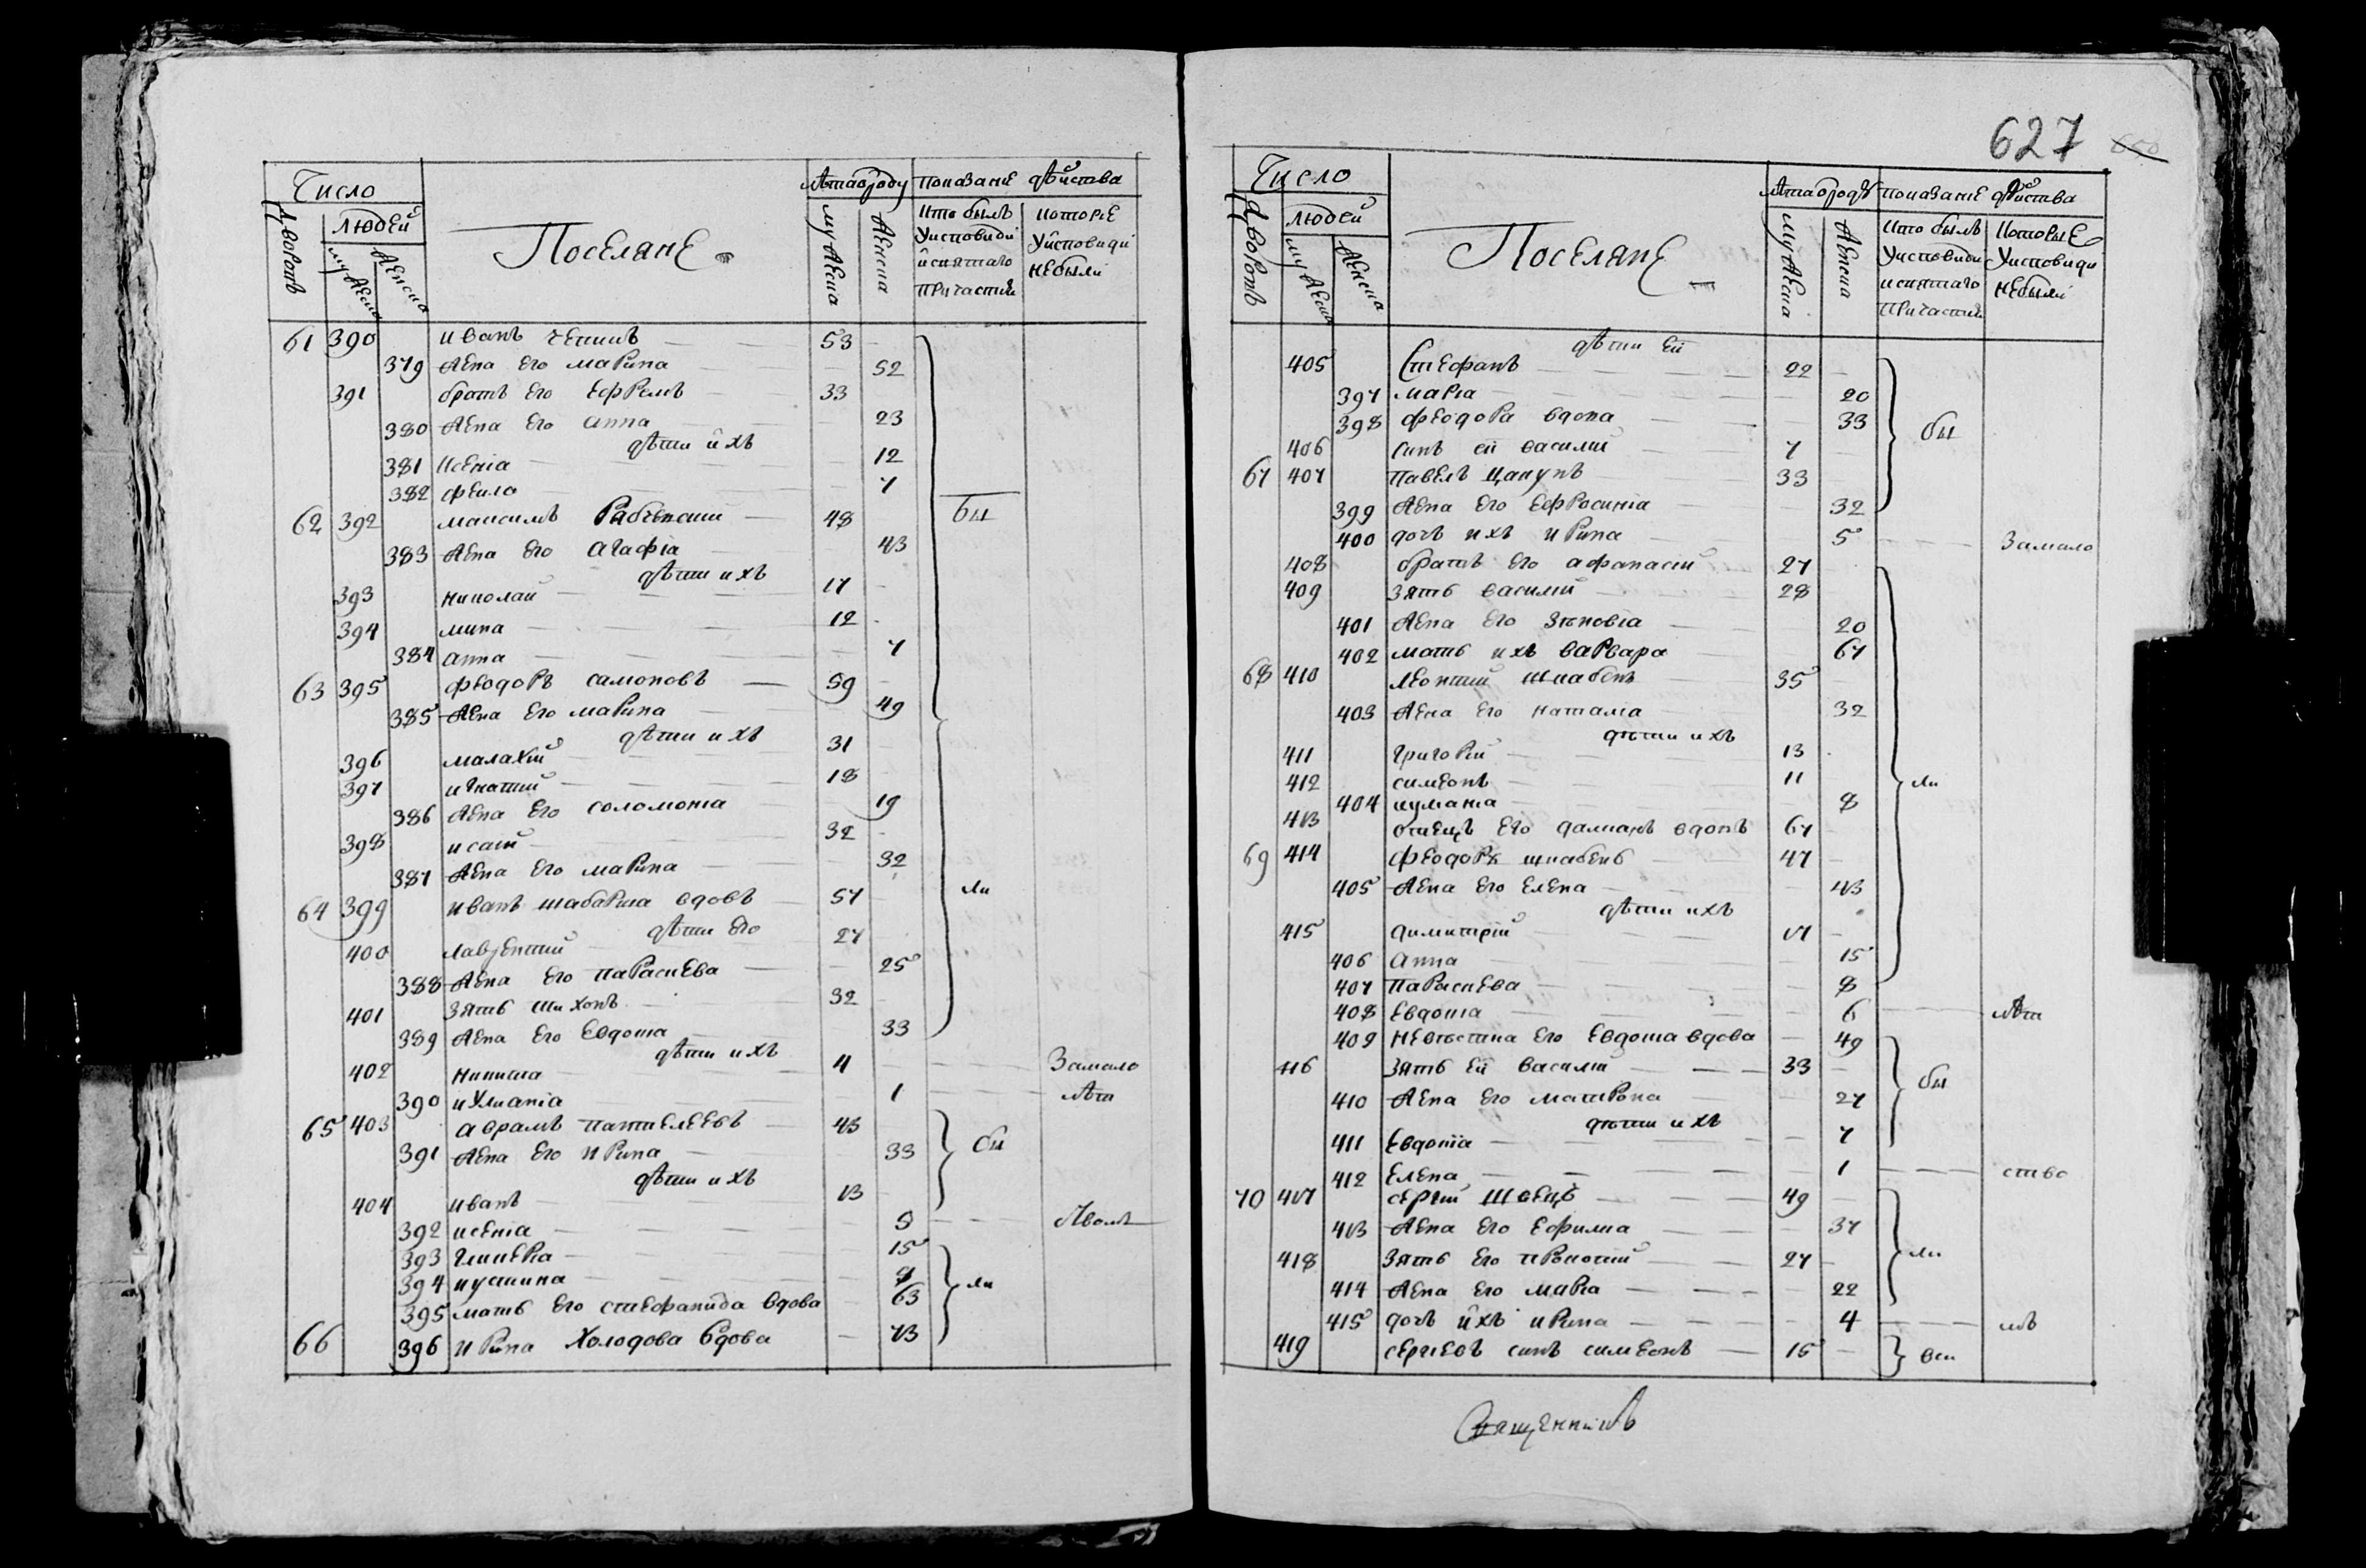 Число
Дворовъ
людей
мужеска
женска
Поселяне
лѣта от роду
мужеска
женска
показание дѣйства
кто былъ
у исповиди
и святаго
причастия
которые
у исповиди
не были
61 390 иванъ 53
379 жена его марина 52
391 братъ его ефремъ 33
380 жена его анна 23
дѣти ихъ
381 ксенїа 12
382 7
62 392 максимъ 48
383 жена его агафїа 43
дѣти ихъ
393 николай 17
394 мина 12
384 анна 7
бы
63 395 феодоръ самоновъ 59
385 жена его марина 49
дѣти ихъ
396 малахїй 31
397 игнатїй 18
386 жена его соломонїа 19
398 исаїй 32
387 жена его марина 32
ли
64 399 иванъ вдовъ 57
дѣти его
400 лаврентїй 27
388 жена его параскева 25
401 зять тихонъ 32
389 жена его евдокїа 33
дѣти ихъ
402 4 замало
390 иулианїа 1 лѣт
65 403 аврамъ пантелеевъ 43
391 жена его ирина 33
дѣти ихъ
404 иванъ 13
бы
392 ксенїа 5
393 гликерїа 15
394 9
395 мать его стефанида вдова 63
66 396 ирина холодова вдова 43
ли
627
Число
Дворовъ
людей
мужеска
женска
Поселяне
лѣта от роду
мужеска
женска
показание дѣйства
кто былъ
у исповиди
и святаго
причастия
которые
у исповиди
не были
дѣти ей
405 Стефанъ 22
397 марїа 20
398 феодора вдова 33
406 синъ ей василїй 7
67 407 павелъ цапунъ 33
399 жена его ефросинїа 32
бы
400 дочь ихъ ирина 5 замало
408 братъ его афанасїй 27
409 зять василїй 28
401 жена его зѣновїа 20
402 мать ихъ варвара 67
68 410 леонтїй 35
403 жена его наталїа 32
дѣти ихъ
411 григорїй 13
412 симеонъ 11
404 8
413 отецъ его дамїанъ вдовъ 67
69 414 феодоръ 47
405 жена его елена 43
дѣти ихъ
415 димитрїй 17
406 анна 15
407 параскева 8
ли
408 евдокїа 6 лѣт
409 невѣстка его евдокїа вдова 49
416 зять ей василїй 33
410 жена его матрона 27
дѣти ихъ
411 евдокїа 7
бы
412 елена 1 ство
70 417 сергїй швецъ 49
413 жена его ефимїа 37
418 зять его прокопїй 27
414 жена его марїа 22
ли
415 дочь ихъ ирина 4 мъ
419 сергїевъ синъ симеонъ 15
вси
Священникъ